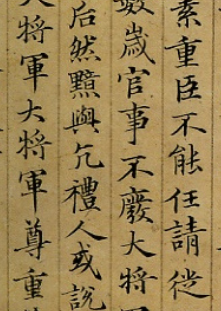 素重臣不能任請徙
數歲官事不廢大將
后然黯與亢禮人或說
大將軍大將軍尊重